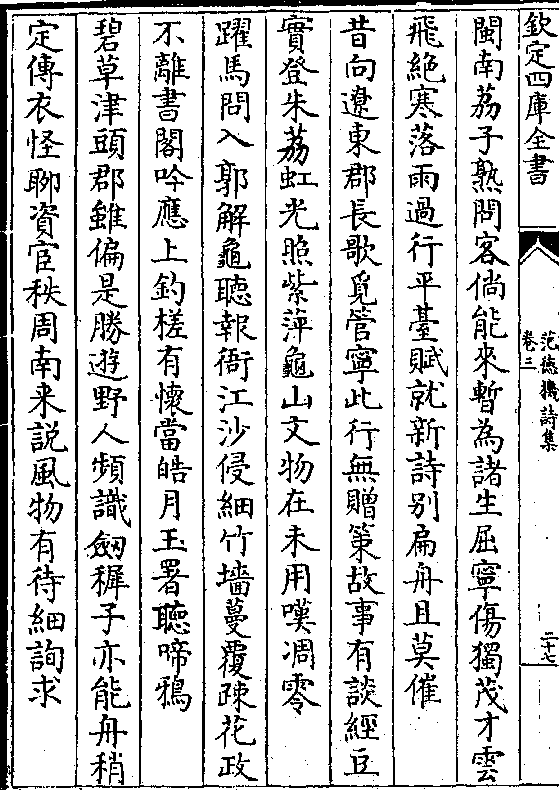 欽定四庫全書
范德機詩集
卷三
二十七
閩南荔子熟問客倘能來暫為諸生屈寧傷獨茂才雲
飛絶寒落雨過行平臺賦就新詩别扁舟且莫催
昔向遼東郡長歌覓管寧此行無贈策故事有談經豆
實登朱荔虹光照紫萍龜山文物在未用嘆凋零
躍馬問入郭解龜聴報衙江沙侵細竹墻蔓覆疎花政
不離書閣吟應上釣槎有懷當皓月玉署聴啼鴉
碧草津頭郡雖偏是勝遊野人頻識劔穉子亦能舟稍
定傳衣怪聊資宦秩周南来説風物有待細詢求